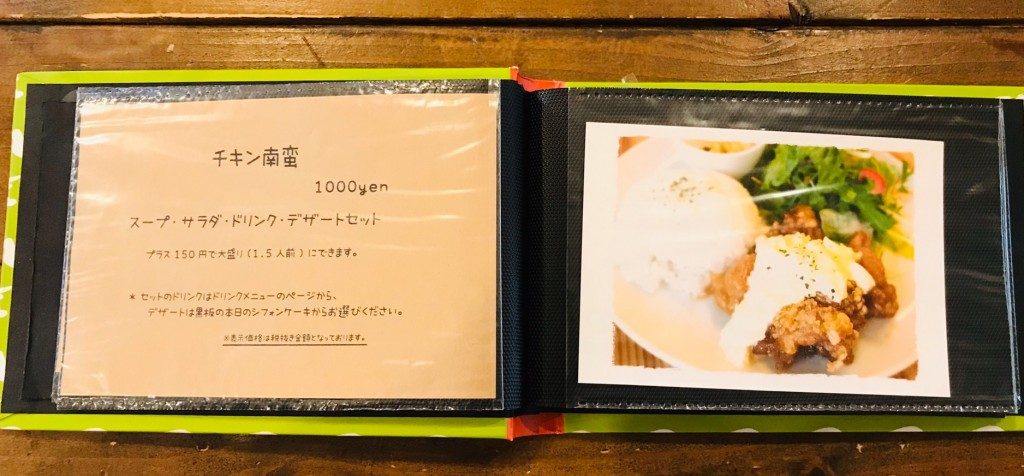 チキン南蛮
1000yen
スープ・サラダ・ドリンク・デザートセット
プラス150円で大盛り(1.5人前)にできます。
* セットのドリンクはドリンクメニューのページから、
デザートは黒板の本日のシフォンケーキからお選びください。
※表示価格は税抜き金額となっております。